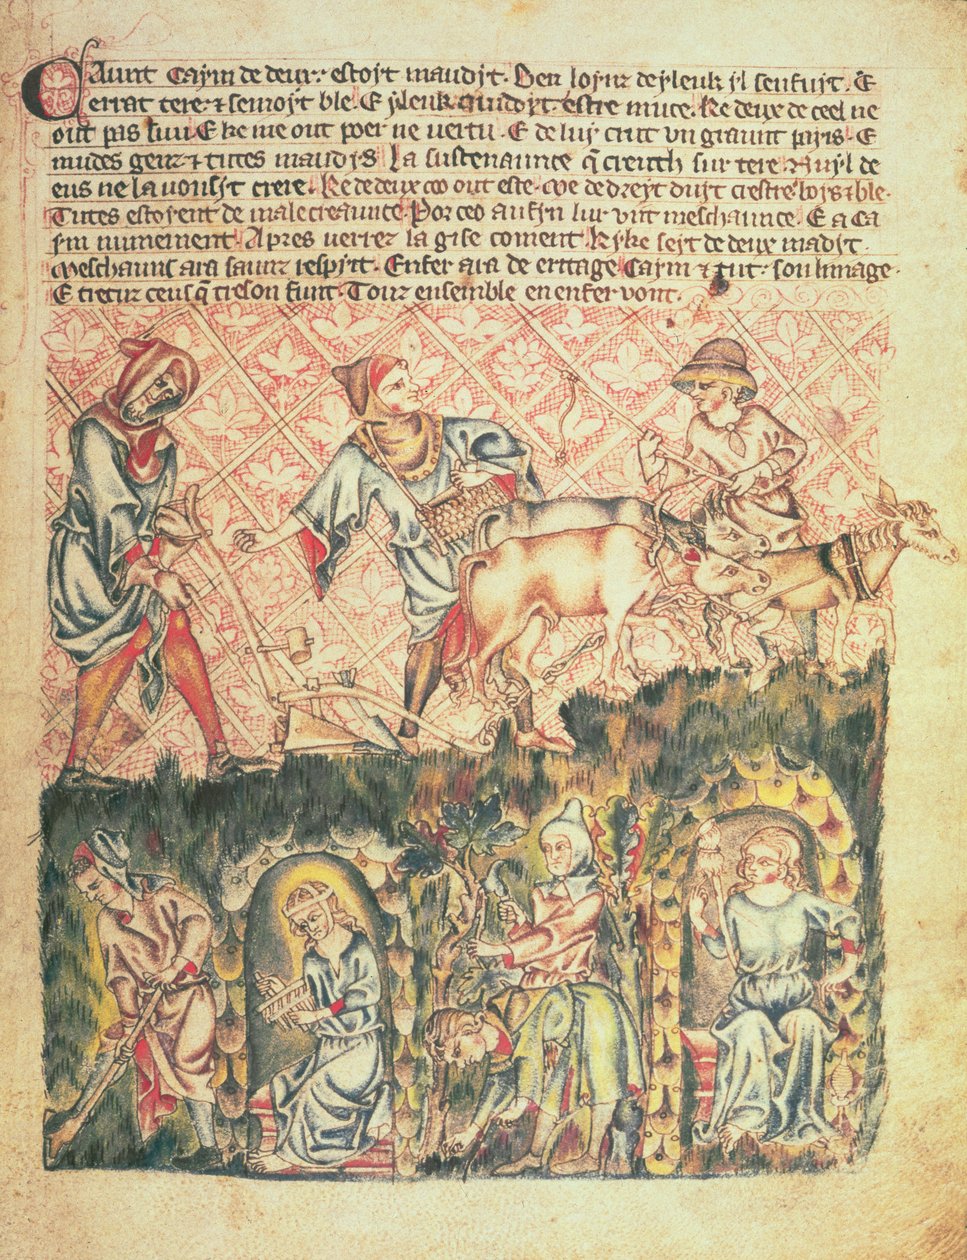 Qaunt Caym de deux estoyt maudyt. Ben loynz de yleuk yl senfuyt. E
errat tere & semoyt ble. E yleuk quidoyt estre muce. Ke deux de ceel ne
out pas suu. E ke ne out poer ne vertu. E de luy crut un graunt pays. E
mudes genz & tutes maudys. La sustenaunce q creuth sur tere. Auyl de
eus ne la crere. Ke de deux coo out este. coe de dreyt duyt crestre & ble.
Tutes estoyent de male creaunce. Por ceo au fyn lur vint meschaunce. E a ca
fin nunement. Apres verrez la gise coment. Kyke seyt de deux madyt.
Meschauns ara saunz respytt. Enfer ara de eritage. Caym & tut soun linage.
E tretuz ceus q treson funt. Touz ensemble en enfer vont.